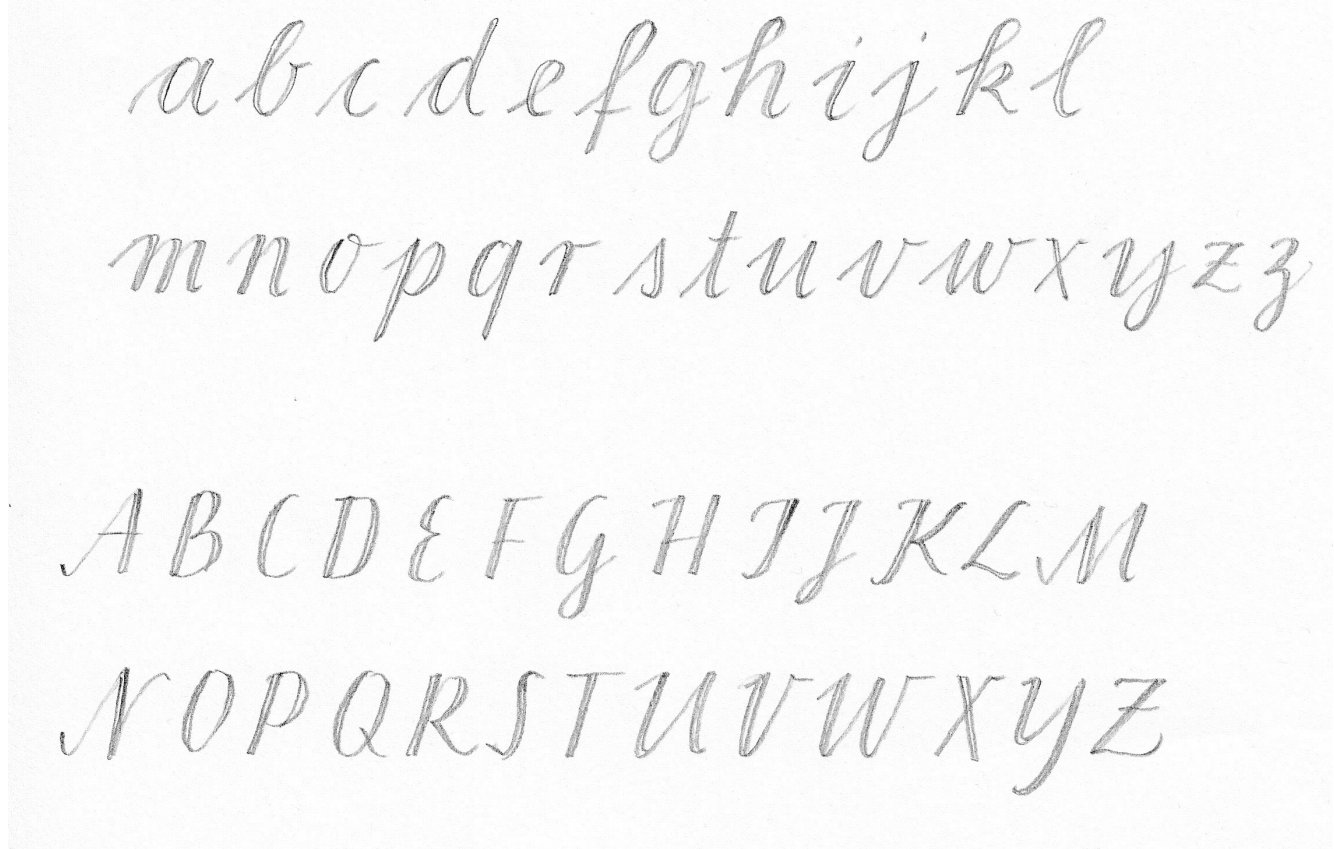 a b c d e f g h i j k l
m n o p q r s t u v w x y z z
A B C D E F G H I J K L M
N O P Q R S T U V W X Y Z